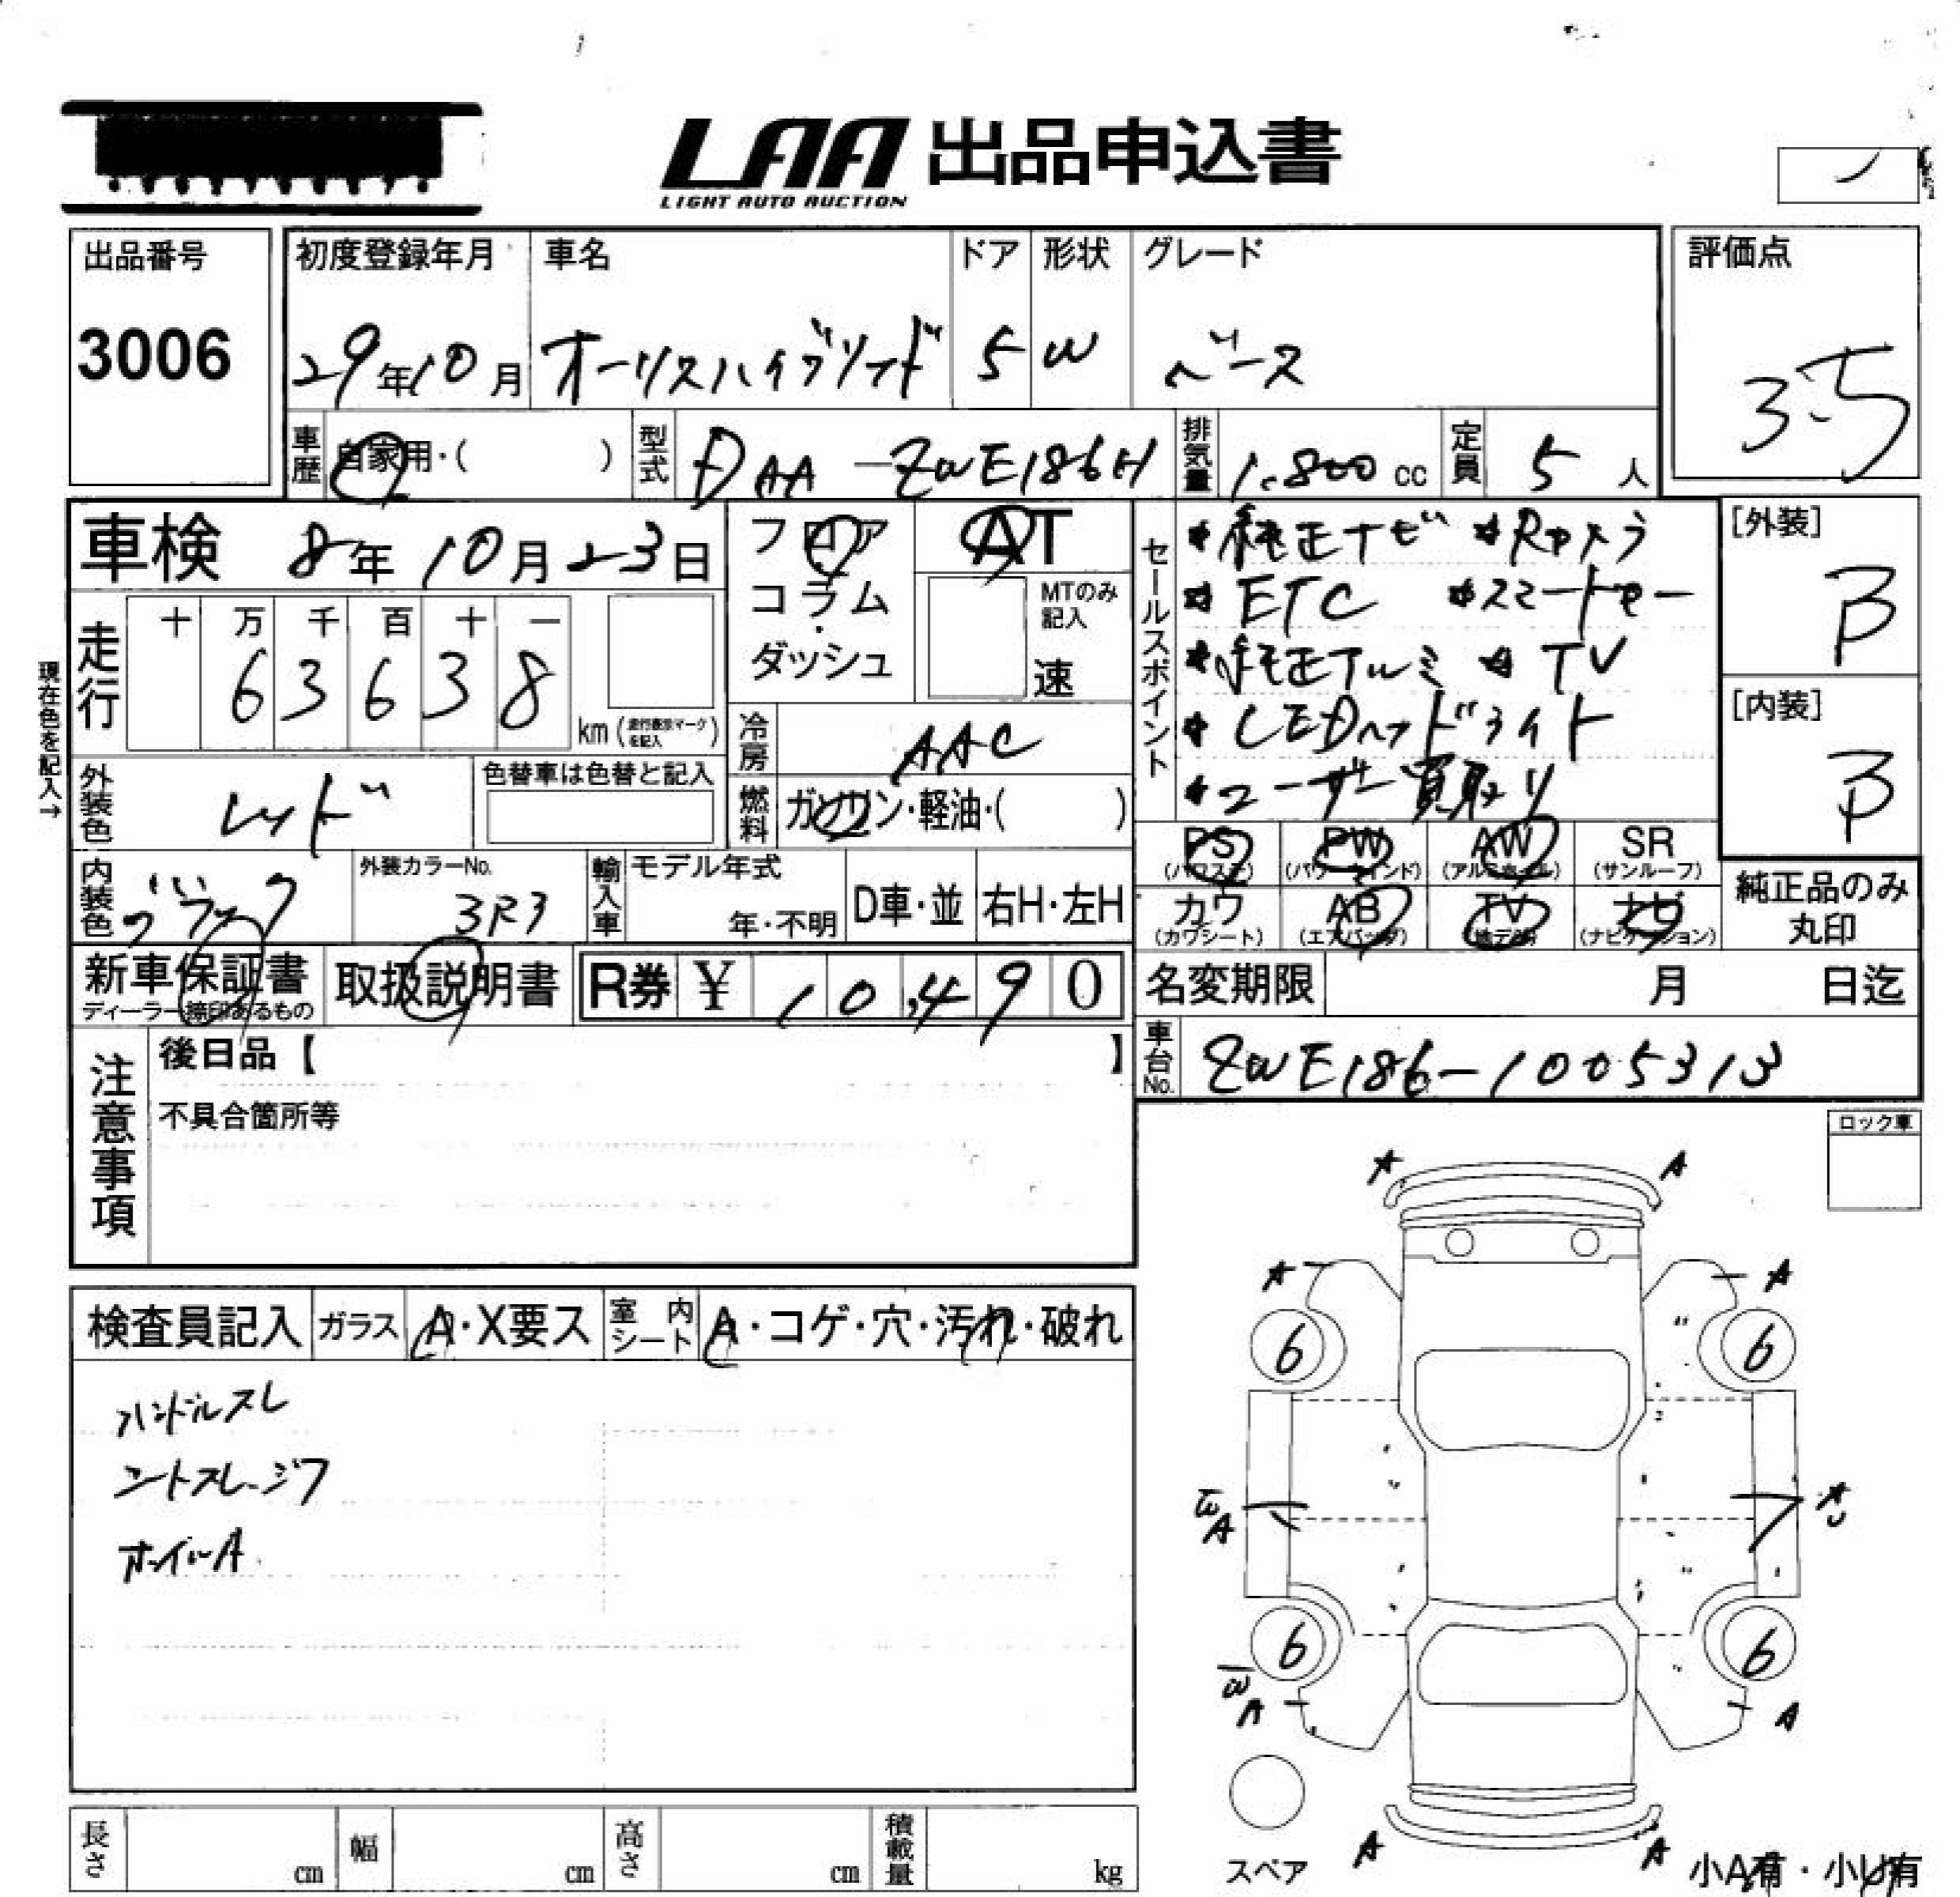 LAA 出品申込書
LIGHT AUTO AUCTION
出品番号
3006
初度登録年月
29年10月
車名
オーリスハイブリッド
ドア
5
形状
W
グレード
ベース
評価点
3.5
車歴
自家用・( )
型式
DAA-ZWE186H
排気量
1.800 cc
定員
5 人
車検 8年10月23日
フロア
コラム
・
ダッシュ
AT
MTのみ記入
速
セールスポイント
*純正ナビ *Rカメラ
*ETC *スマートキー
*純正アルミ *TV
*LEDヘッドライト
*ユーザー買取り
[外装]
B
[内装]
B
現在色を記入→
走行
十 万 千 百 十 一
6 3 6 3 8
km (走行表示マークを記入)
冷房
AAC
燃料
ガソリン・軽油・( )
外装色
レッド
色替車は色替と記入
内装色
ブラック
外装カラーNo.
3R3
輸入車
モデル年式
年・不明
D車・並
右H・左H
PS
(パワステ)
PW
(パワーウインド)
AW
(アルミホイル)
SR
(サンルーフ)
カワ
(カワシート)
AB
(エアバッグ)
TV
(地デジ)
ナビ
(ナビゲーション)
純正品のみ
丸印
新車保証書
ディーラー捺印あるもの
取扱説明書
R券 ¥ 10,490
名変期限 月 日迄
車台No.
ZWE186-1005313
注意事項
後日品【 】
不具合箇所等
ロック車
検査員記入
ガラス
A・X要ス
室内シート
A・コゲ・穴・汚れ・破れ
ハンドルスレ
シートスレ・シワ
ホイルA
A A
A A
6 6
A
6 6
A A
A A
スペア
小A有・小U有
長さ cm
幅 cm
高さ cm
積載量 kg